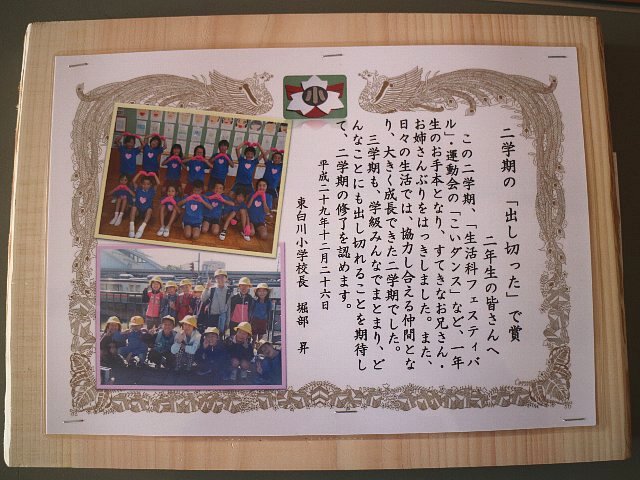 二学期の「出し切った」で賞
二年生の皆さんへ
この二学期、「生活科フェスティバ
ル」・運動会の「こいダンス」など、一年
生のお手本となり、すてきなお兄さん・
お姉さんぶりをはっきしました。また、
日々の生活では、協力し合える仲間とな
り、大きく成長できた二学期でした。
三学期も、学級みんなでまとまり、ど
んなことにも出し切れることを期待し
て、二学期の修了を認めます。
平成二十九年十二月二十六日
東白川小学校長 堀部 昇
小